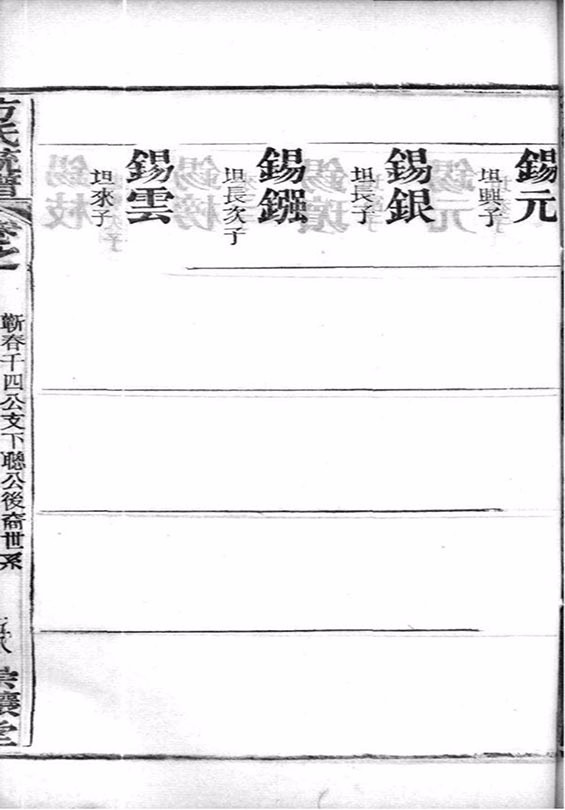 錫元
坦興子
錫銀
坦長子
錫鏹
坦長次子
錫雲
坦來子
方氏統譜
卷之一
蘄春千四公支下聰公後裔世系